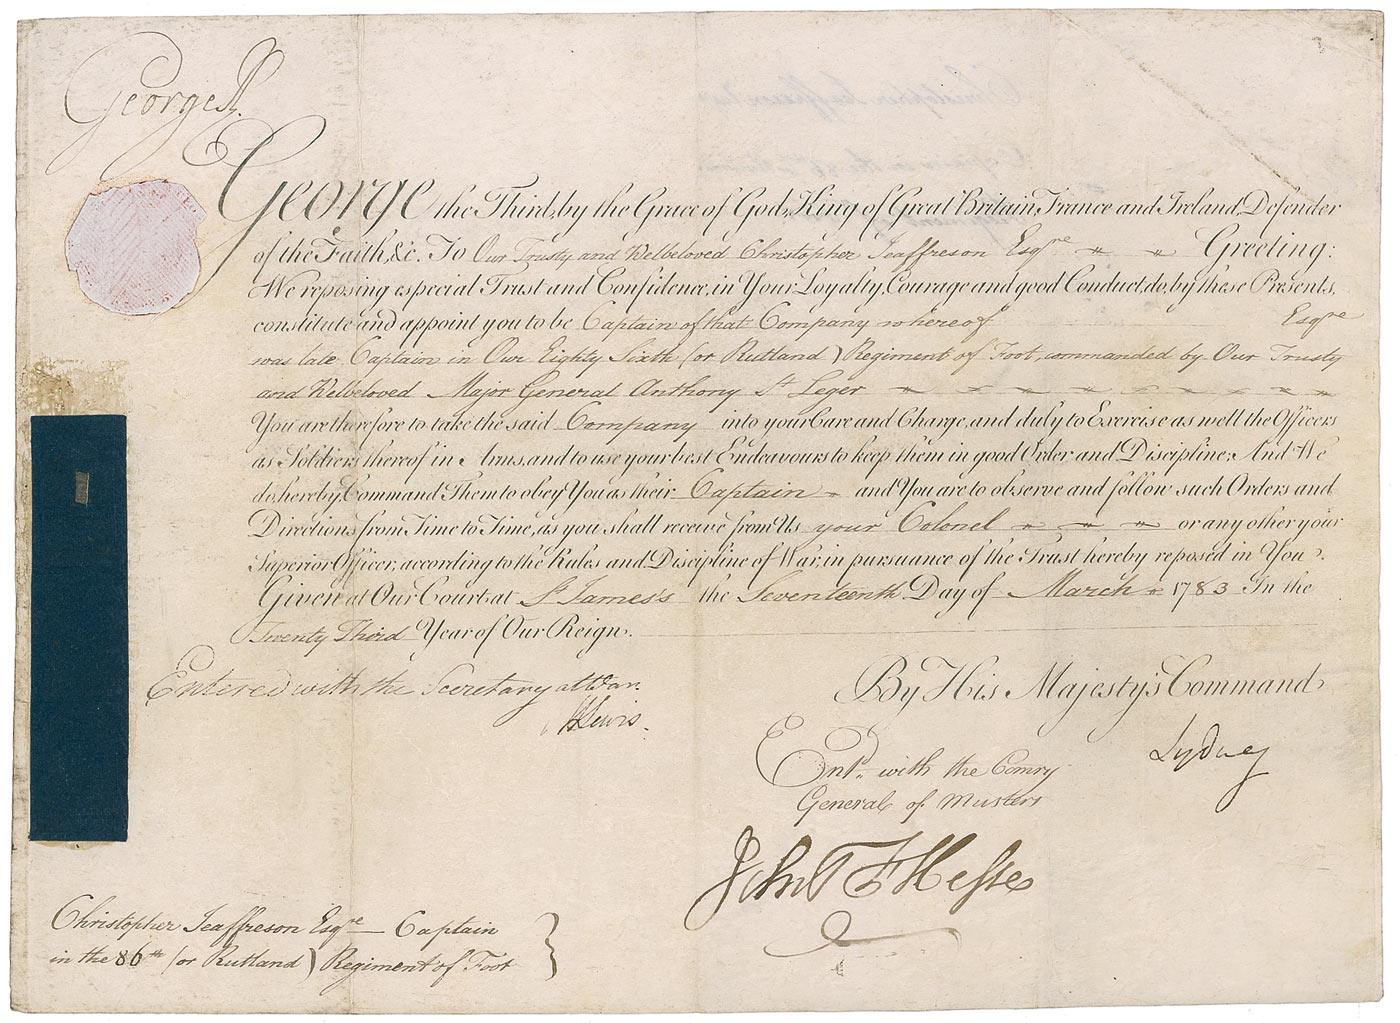 George R.
George the Third, by the Grace of God, King of Great Britain, France and Ireland, Defender
of the Faith, &c. To Our Trusty and Welbeloved Christopher Jeaffreson Esqre Greeting:
We reposing especial Trust and Confidence, in Your Loyalty, Courage and good Conduct, do, by these Presents,
constitute and appoint you to be Captain of that Company whereof Esqre
was late Captain in Our Eighty Sixth (or Rutland) Regiment of Foot, commanded by Our Trusty
and Welbeloved Major General Anthony St. Leger
You are therefore to take the said Company into your Care and Charge, and duly to Exercise as well the Officers
as Soldiers thereof in Arms, and to use your best Endeavours to keep them in good Order and Discipline; And We
do, hereby, Command Them to obey You as their Captain and You are to observe and follow such Orders and
Directions, from Time to Time, as you shall receive from Us, your Colonel or any other your
Superior Officer, according to the Rules and Discipline of War, in pursuance of the Trust hereby reposed in You.
Given at Our Court, at St. James's the Seventeenth Day of March 1783 In the
Twenty Third Year of Our Reign.
Entered with the Secretary at War.
Lewis.
By His Majesty's Command
Sydney
Entd. with the Comry
General of Musters
John T F Hesse
Christopher Jeaffreson Esqre Captain
in the 86th (or Rutland) Regiment of Foot